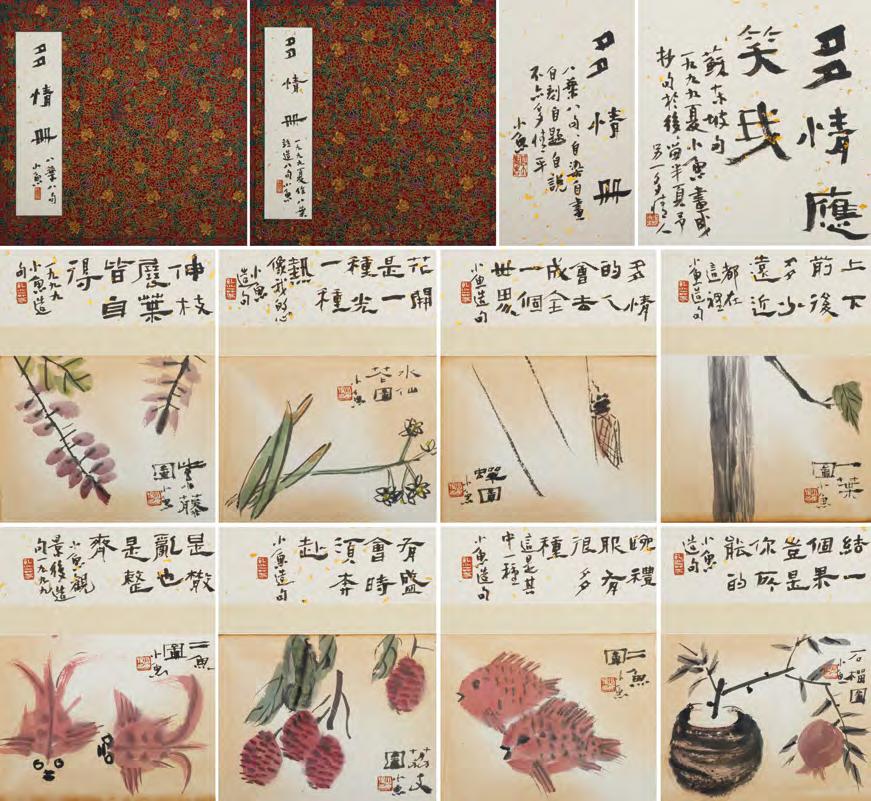 多情冊
八葉八句
小魚
多情冊
一九九九夏作八葉
造八句小魚
多情冊
八葉八句自染自畫
自刻自題自說
不亦多情乎
小魚
多情應
笑我
蘇東坡句
一九九九夏小魚畫成
抄句於後留半頁予
另一多情人
伸枝
展葉
皆自
得
一九九九
小魚造
句
紫藤
圖小魚
花開
是一
種光
一種
熱
像我的心
小魚
造句
水仙
花圖
小魚
多情
的人
會去
成全
一個
世界
小魚造句
蟬圖
小魚
上下
前後
多少
遠近
都在
這裡
小魚造句
一葉
圖小魚
是散
亂也
是整
齊
小魚觀
景後造
句一九九九
二魚
圖
小魚
有盛
會時
須奔
赴
小魚造句
荔支
圖小魚
晚禮
服有
很多
種
這是其
中一種
小魚造句
二魚
圖小魚
結一
個果
豈是
你所
能的
小魚
造句
石榴圖
小魚